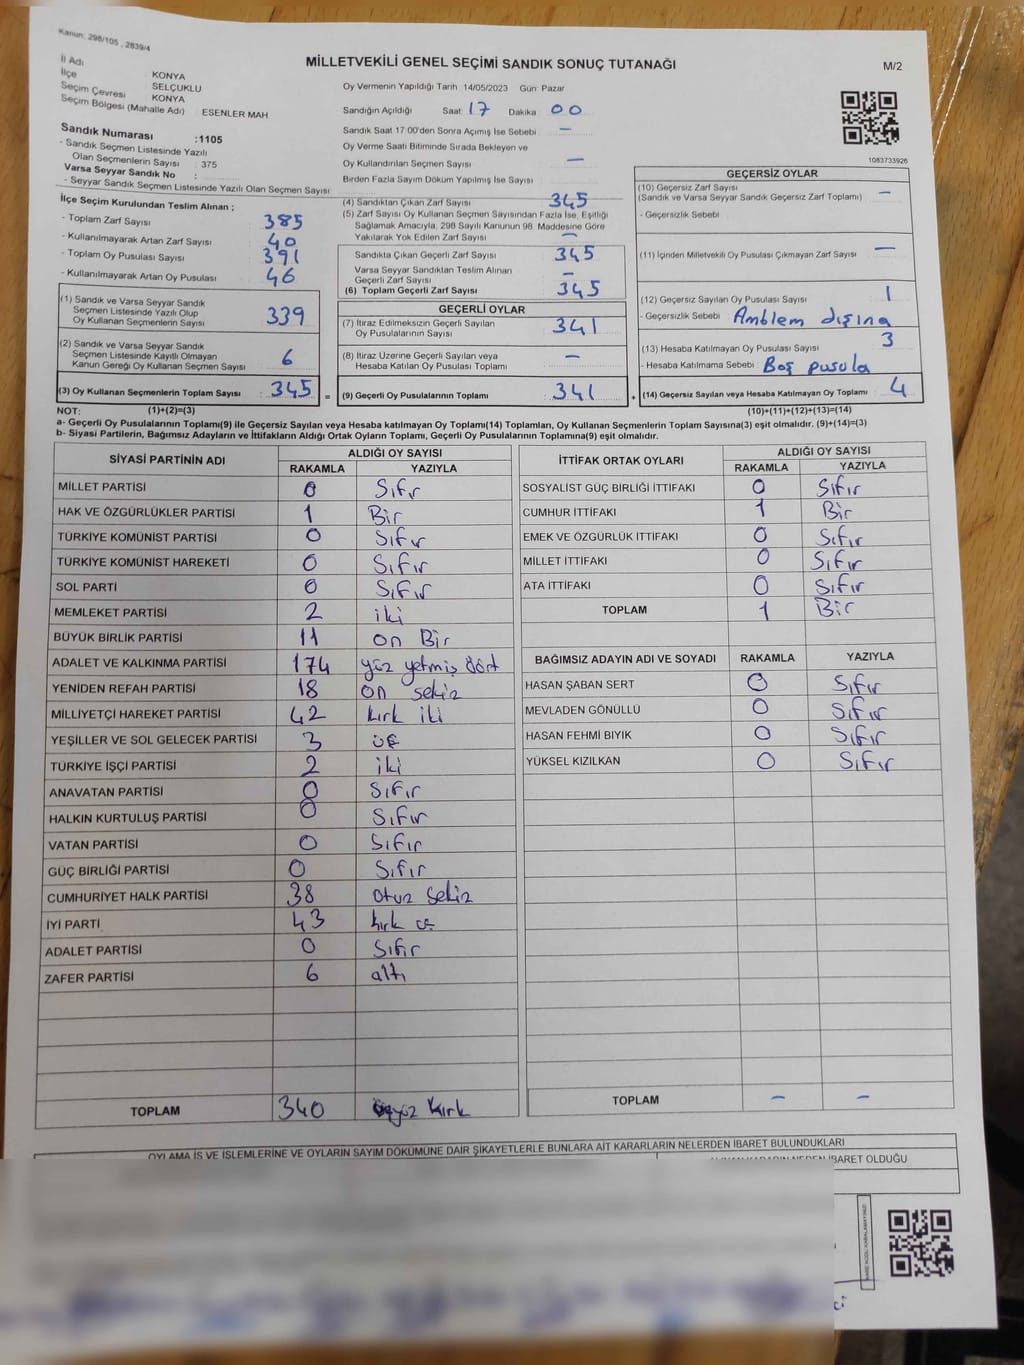 Kanun: 298/105 , 2839/4
MİLLETVEKİLİ GENEL SEÇİMİ SANDIK SONUÇ TUTANAĞI
M/2
İl Adı KONYA
İlçe SELÇUKLU
Seçim Çevresi KONYA
Seçim Bölgesi (Mahalle Adı) ESENLER MAH
Sandık Numarası :1105
- Sandık Seçmen Listesinde Yazılı
Olan Seçmenlerin Sayısı : 375
Varsa Seyyar Sandık No :
- Seyyar Sandık Seçmen Listesinde Yazılı Olan Seçmen Sayısı
Oy Vermenin Yapıldığı Tarih 14/05/2023 Gün: Pazar
Sandığın Açıldığı Saat: 17 Dakika 00
Sandık Saat 17.00'den Sonra Açımış İse Sebebi –
Oy Verme Saati Bitiminde Sırada Bekleyen ve
Oy Kullandırılan Seçmen Sayısı –
Birden Fazla Sayım Döküm Yapılmış İse Sayısı
1083733926
İlçe Seçim Kurulundan Teslim Alınan ;
- Toplam Zarf Sayısı 385
- Kullanılmayarak Artan Zarf Sayısı 40
- Toplam Oy Pusulası Sayısı 391
- Kullanılmayarak Artan Oy Pusulası 46
(1) Sandık ve Varsa Seyyar Sandık
Seçmen Listesinde Yazılı Olup
Oy Kullanan Seçmenlerin Sayısı 339
(2) Sandık ve Varsa Seyyar Sandık
Seçmen Listesinde Kayıtlı Olmayan
Kanun Gereği Oy Kullanan Seçmen Sayısı 6
(3) Oy Kullanan Seçmenlerin Toplam Sayısı 345 =
(4) Sandıktan Çıkan Zarf Sayısı 345
(5) Zarf Sayısı Oy Kullanan Seçmen Sayısından Fazla İse, Eşitliği
Sağlamak Amacıyla, 298 Sayılı Kanunun 98. Maddesine Göre
Yakılarak Yok Edilen Zarf Sayısı –
Sandıkta Çıkan Geçerli Zarf Sayısı 345
Varsa Seyyar Sandıktan Teslim Alınan
Geçerli Zarf Sayısı –
(6) Toplam Geçerli Zarf Sayısı 345
GEÇERLİ OYLAR
(7) İtiraz Edilmeksizin Geçerli Sayılan
Oy Pusulalarının Sayısı 341
(8) İtiraz Üzerine Geçerli Sayılan veya
Hesaba Katılan Oy Pusulası Toplamı –
(9) Geçerli Oy Pusulalarının Toplamı 341 +
GEÇERSİZ OYLAR
(10) Geçersiz Zarf Sayısı
(Sandık ve Varsa Seyyar Sandık Geçersiz Zarf Toplamı) –
- Geçersizlik Sebebi
(11) İçinden Milletvekili Oy Pusulası Çıkmayan Zarf Sayısı –
(12) Geçersiz Sayılan Oy Pusulası Sayısı 1
- Geçersizlik Sebebi Amblem dışına
(13) Hesaba Katılmayan Oy Pusulası Sayısı 3
- Hesaba Katılmama Sebebi Boş pusula
(14) Geçersiz Sayılan veya Hesaba Katılmayan Oy Toplamı 4
NOT: (1)+(2)=(3) (10)+(11)+(12)+(13)=(14)
a- Geçerli Oy Pusulalarının Toplamı(9) ile Geçersiz Sayılan veya Hesaba katılmayan Oy Toplamı(14) Toplamları, Oy Kullanan Seçmenlerin Toplam Sayısına(3) eşit olmalıdır. (9)+(14)=(3)
b- Siyasi Partilerin, Bağımsız Adayların ve İttifakların Aldığı Ortak Oyların Toplamı, Geçerli Oy Pusulalarının Toplamına(9) eşit olmalıdır.
SİYASİ PARTİNİN ADI ALDIĞI OY SAYISI
RAKAMLA YAZIYLA
MİLLET PARTİSİ 0 Sıfır
HAK VE ÖZGÜRLÜKLER PARTİSİ 1 Bir
TÜRKİYE KOMÜNİST PARTİSİ 0 Sıfır
TÜRKİYE KOMÜNİST HAREKETİ 0 Sıfır
SOL PARTİ 0 Sıfır
MEMLEKET PARTİSİ 2 iki
BÜYÜK BİRLİK PARTİSİ 11 on Bir
ADALET VE KALKINMA PARTİSİ 174 yüz yetmiş dört
YENİDEN REFAH PARTİSİ 18 on sekiz
MİLLİYETÇİ HAREKET PARTİSİ 42 kırk iki
YEŞİLLER VE SOL GELECEK PARTİSİ 3 üç
TÜRKİYE İŞÇİ PARTİSİ 2 iki
ANAVATAN PARTİSİ 0 Sıfır
HALKIN KURTULUŞ PARTİSİ 0 Sıfır
VATAN PARTİSİ 0 Sıfır
GÜÇ BİRLİĞİ PARTİSİ 0 Sıfır
CUMHURİYET HALK PARTİSİ 38 otuz sekiz
İYİ PARTİ 43 kırk üç
ADALET PARTİSİ 0 Sıfır
ZAFER PARTİSİ 6 altı
TOPLAM 340 üçyüz kırk
İTTİFAK ORTAK OYLARI ALDIĞI OY SAYISI
RAKAMLA YAZIYLA
SOSYALİST GÜÇ BİRLİĞİ İTTİFAKI 0 Sıfır
CUMHUR İTTİFAKI 1 Bir
EMEK VE ÖZGÜRLÜK İTTİFAKI 0 Sıfır
MİLLET İTTİFAKI 0 Sıfır
ATA İTTİFAKI 0 Sıfır
TOPLAM 1 Bir
BAĞIMSIZ ADAYIN ADI VE SOYADI RAKAMLA YAZIYLA
HASAN ŞABAN SERT 0 Sıfır
MEVLADEN GÖNÜLLÜ 0 Sıfır
HASAN FEHMİ BIYIK 0 Sıfır
YÜKSEL KIZILKAN 0 Sıfır
TOPLAM – –
OYLAMA İŞ VE İŞLEMLERİNE VE OYLARIN SAYIM DÖKÜMÜNE DAİR ŞİKAYETLERLE BUNLARA AİT KARARLARIN NELERDEN İBARET BULUNDUKLARI
KARARIN NEDEN İBARET OLDUĞU